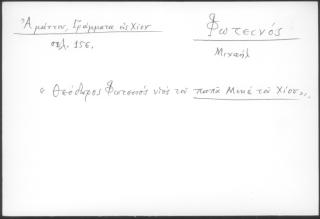 Ἀμάντου, Γράμματα ἐκ Χίου
σελ. 156.
Φωτεινός
Μιχαήλ
« Θεόδωρος Φωτεινός υἱός τοῦ παπᾶ Μικέ τοῦ Χίου»,